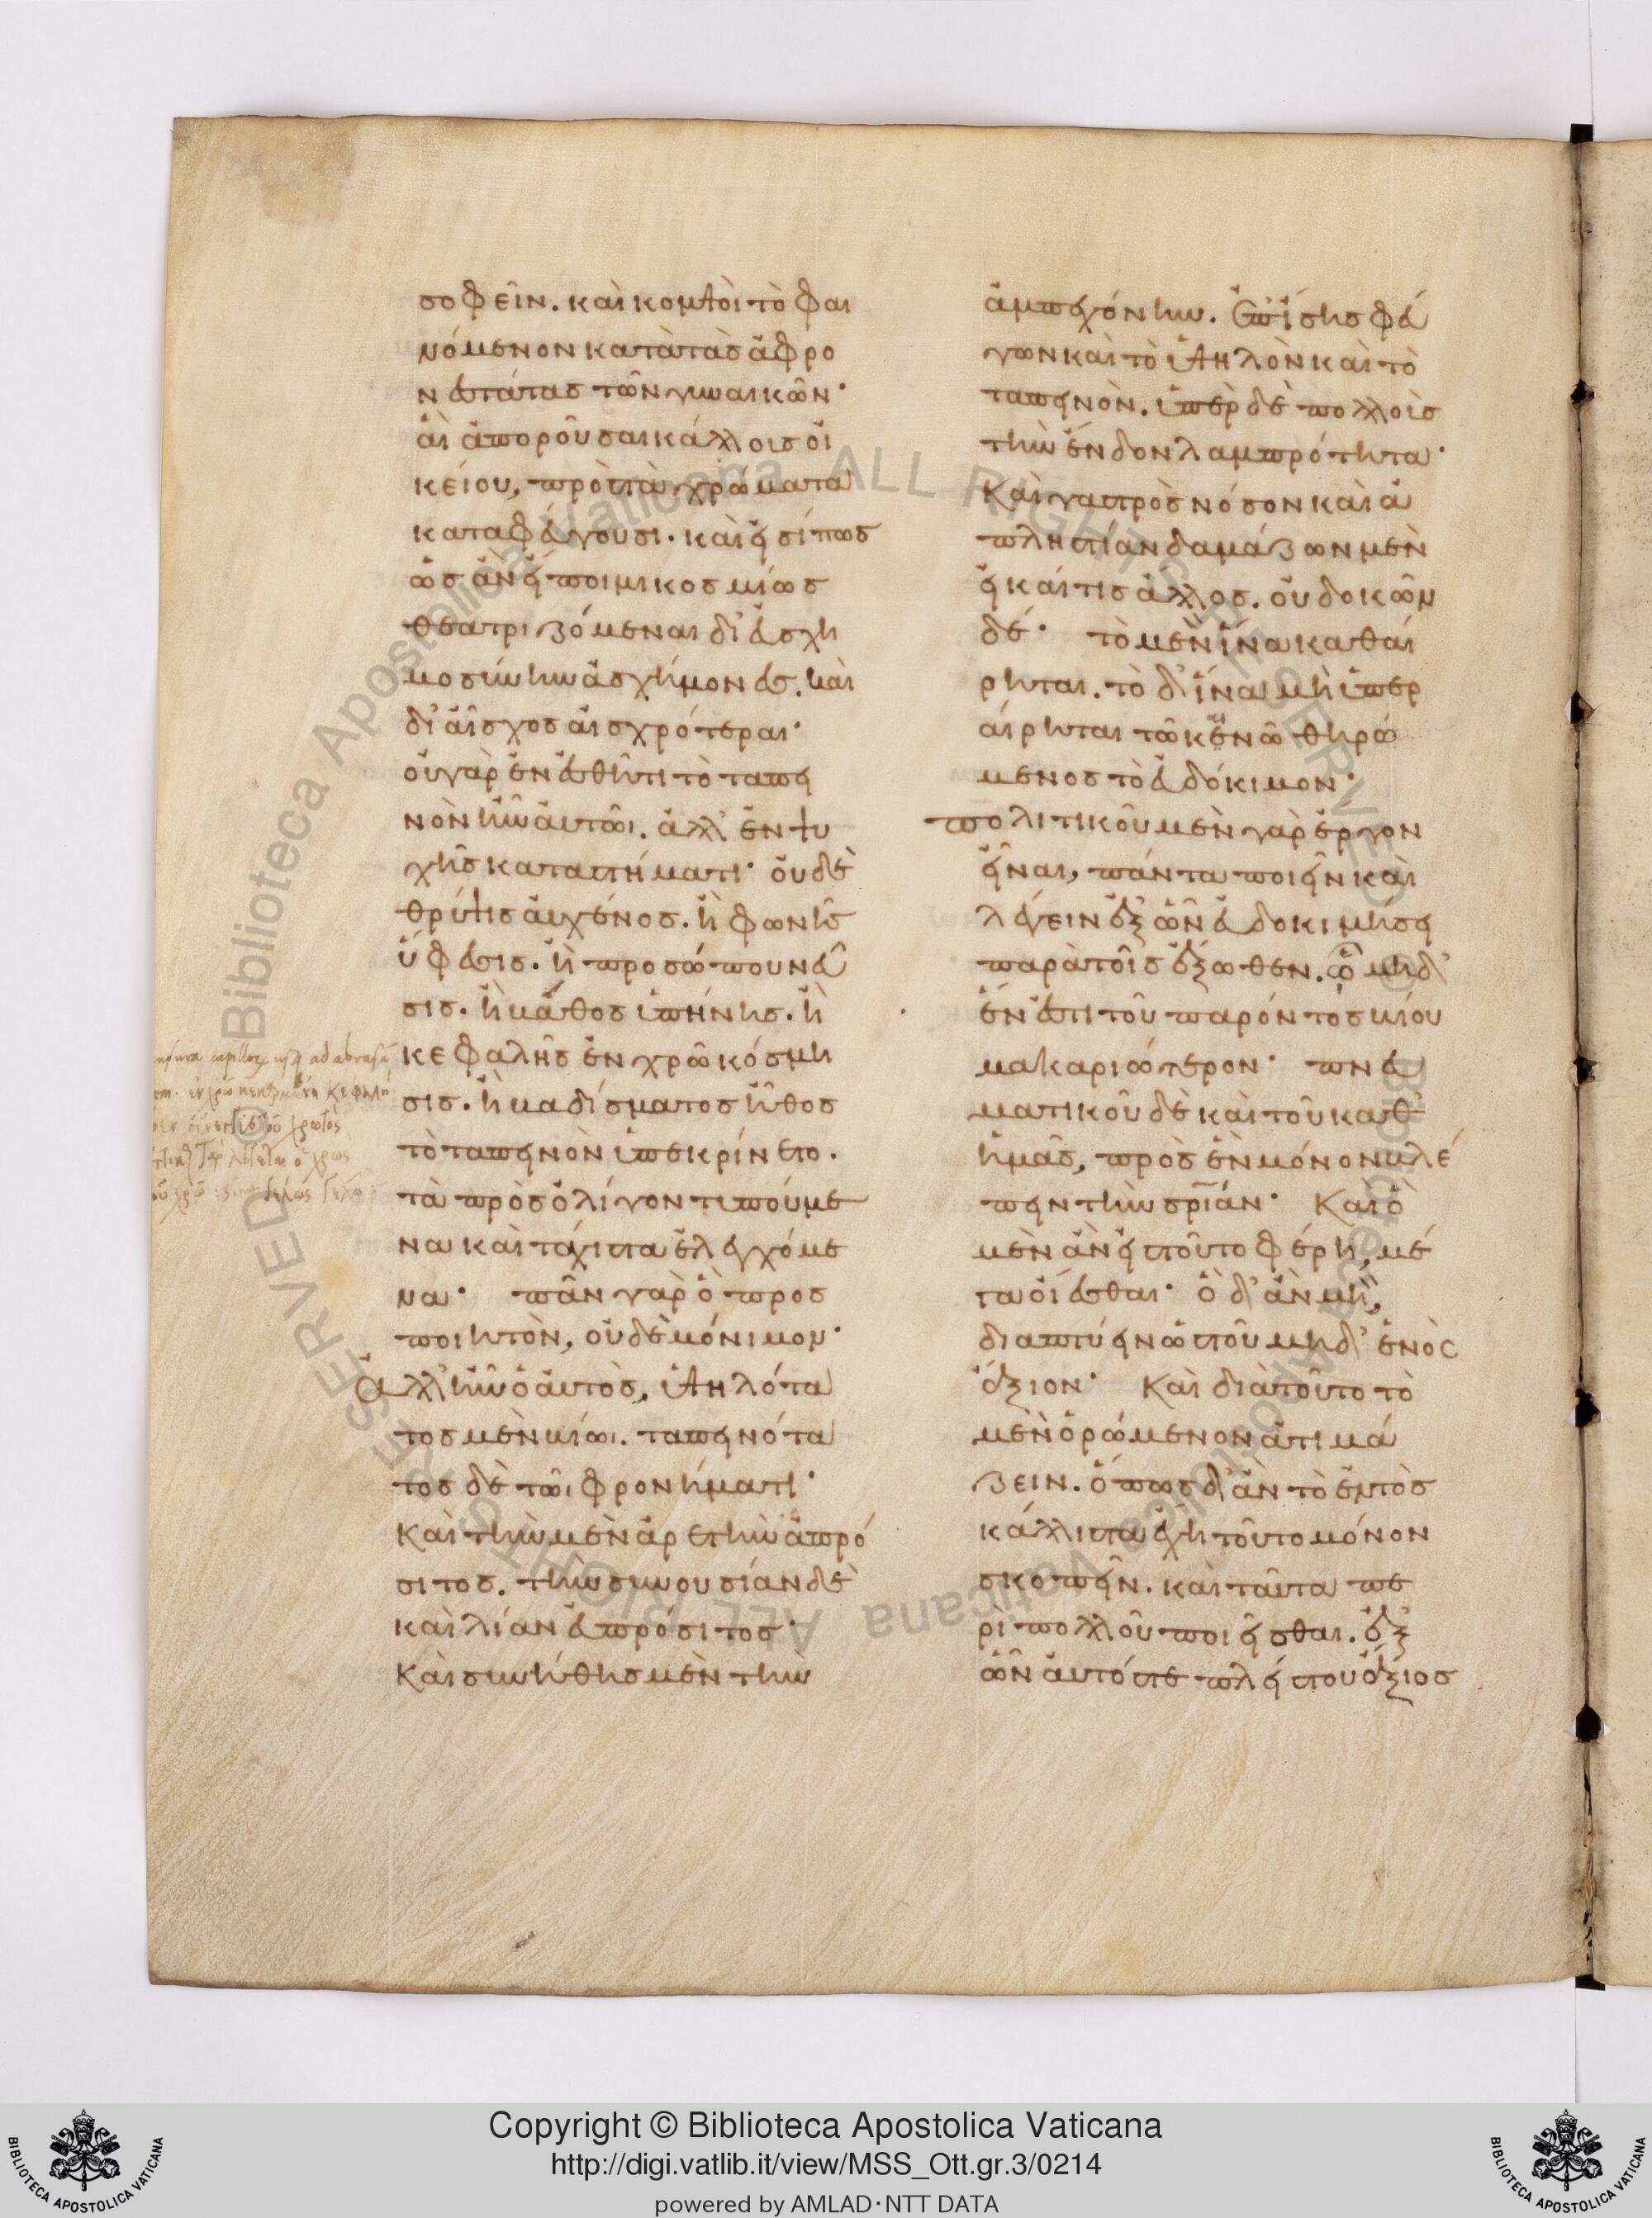 σοφεῖν. καὶ κομψοὶ τὸ φαι
νόμενον κατὰ τὰς ἄφρο
νεστάτας τῶν γυναικῶν·
αἳ ἀποροῦσαι κάλλους οἰ
κείου, πρὸς τὰ χρώματα
καταφεύγουσι. καὶ εἰσί πως
ὡς ἂν εἴποιμι κοσμίως
θεατριζόμεναι δι' ἀσχη
μοσύνην ἀσχήμονες. καὶ
δι' αἶσχος αἰσχρότεραι·
οὐ γὰρ ἐν ἐσθῆτι τὸ ταπει
νὸν ἦν αὐτῶι. ἀλλ' ἐν ψυ
χῆς καταστήματι· οὐδὲ
θρύψις αὐχένος. ἢ φωνῆς
ὕφεσις. ἢ προσώπου νεῦ
σις. ἢ βάθος ὑπήνης. ἢ
κεφαλῆς ἐν χρῷ κόσμη
σις. ἢ βαδίσματος ἦθος
τὸ ταπεινὸν ὑπεκρίνετο.
τὰ πρὸς ὀλίγον τυπούμε
να καὶ τάχιστα ἐλεγχόμε
να· πᾶν γὰρ ὃ προς
ποιητὸν, οὐδὲ μόνιμον·
Ἀλλ' ἦν ὁ αὐτὸς, ὑψηλότα
τος μὲν βίωι. ταπεινότα
τος δὲ τῶι φρονήματι·
Καὶ τὴν μὲν ἀρετὴν ἀπρό
σιτος. τὴν συνουσίαν δὲ
καὶ λίαν εὐπρόσιτος·
Καὶ συνήθης μὲν τὴν
ἀμπεχόνην. Ἐπίσης φεύ
γων καὶ τὸ ὑψηλὸν καὶ τὸ
ταπεινὸν. ὑπὲρ δὲ πολλοὺς
τὴν ἔνδον λαμπρότητα·
Καὶ γαστρὸς νόσον καὶ ἀ
πληστίαν δαμάζων μὲν
εἰ καί τις ἄλλος. οὐ δοκῶν
δέ· τὸ μὲν ἵνα καθαί
ρηται. τὸ δ' ἵνα μὴ ὑπερ
αίρηται τῷ κενῷ θηρώ
μενος τὸ εὐδόκιμον·
πολιτικοῦ μὲν γὰρ ἔργον
εἶναι, πάντα ποιεῖν καὶ
λέγειν ἐξ ὧν εὐδοκιμήσει
παρὰ τοῖς ἔξωθεν. ᾧ μηδ'
ἔνεστι τοῦ παρόντος βίου
μακαριώτερον· πνευ
ματικοῦ δὲ καὶ τοῦ καθ'
ἡμᾶς, πρὸς ἓν μόνον βλέ
πειν τὴν σρίαν· Καὶ ὃ
μὲν ἂν εἰς τοῦτο φέρη, μέ
γα οἴεσθαι· ὃ δ' ἂν μὴ,
διαπτύειν ὡς τοῦ μηδ' ἑνὸς
ἄξιον· Καὶ διὰ τοῦτο τὸ
μὲν ὁρώμενον ἀτιμά
ζειν. ὅπως δ' ἂν τὸ ἐντὸς
κάλλιστα ἔχη τοῦτο μόνον
σκοπεῖν. καὶ ταῦτα πε
ρὶ πολλοῦ ποιεῖσθαι. ἐξ
ὧν αὐτός τε πλείστου ἄξιος
Copyright © Biblioteca Apostolica Vaticana
http://digi.vatlib.it/view/MSS_Ott.gr.3/0214
powered by AMLAD·NTT DATA
BIBLIOTECA APOSTOLICA VATICANA
BIBLIOTECA APOSTOLICA VATICANA